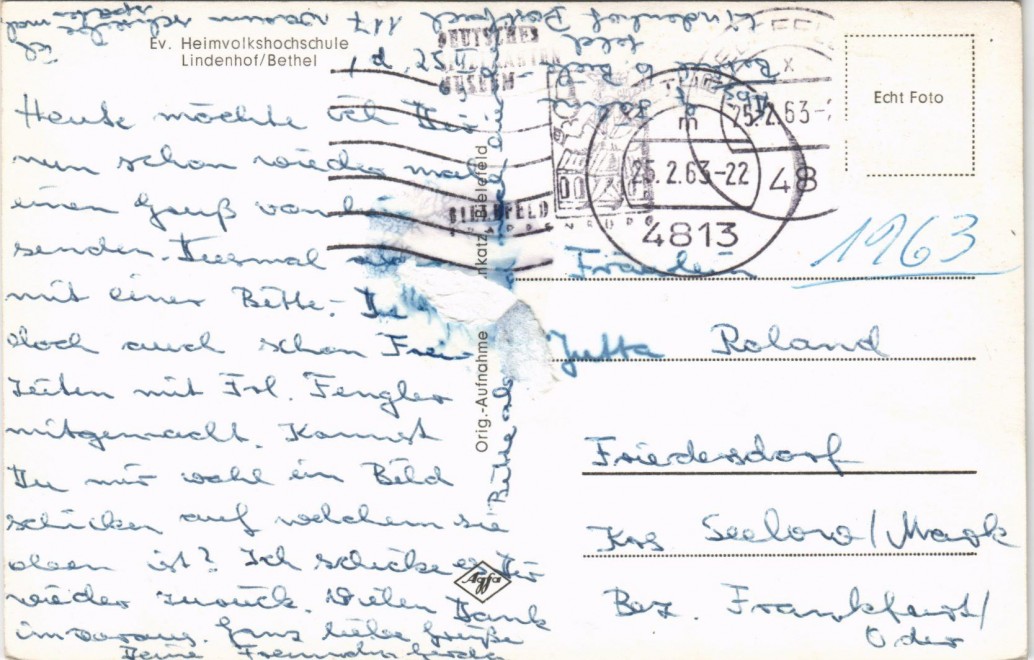 Ev. Heimvolkshochschule
Lindenhof/Bethel
Heute möchte ich Dir
nun schon wieder mal
einen Gruß von
senden. Diesmal
mit einer Bitte. – Du
doch auch schon Frei-
zeiten mit Frl. Fengler
mitgemacht. Kannst
Du mir wohl ein Bild
schicken auf welchem sie
oben ist? Ich schicke es Dir
wieder zurück. Vielen Dank
im voraus. Ganz liebe Grüße
Deine Freundin Gerda
Orig.-Aufnahme
Bielefeld
Bitte
Agfa
DEUTSCHES
MUSEUM
BIELEFELD
25.2.63-22
4813
25.2.63-
48
Echt Foto
1963
Fräulein
Jutta Roland
Friedersdorf
Krs Seelow/Mark
Bez. Frankfurt/
Oder
Lindenhof Postfach 117